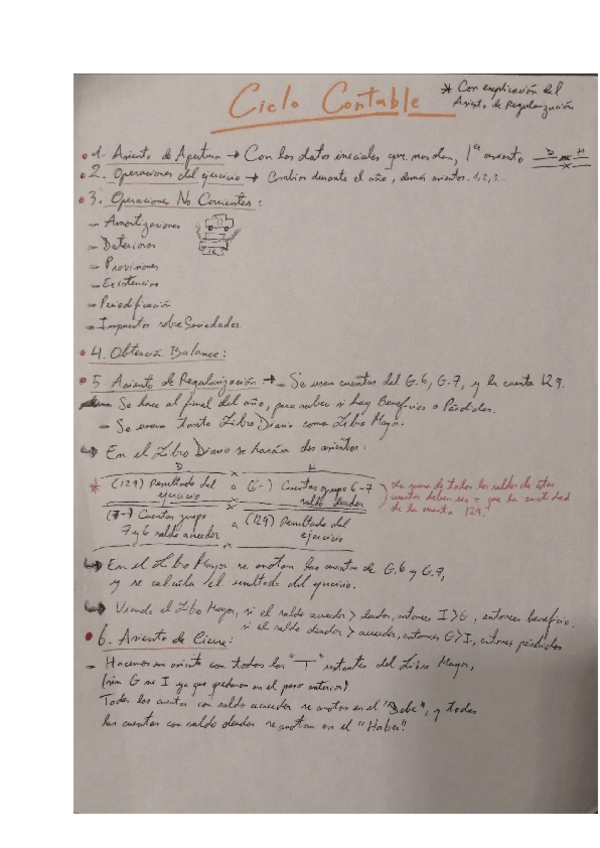 Ciclo Contable
* Con explicación del
Asiento de Regularización
1. Asiento de Apertura → Con los datos iniciales que nos dan, 1er asiento D H
2. Operaciones del ejercicio → Cambios durante el año, demás asientos. 1, 2, 3...
3. Operaciones No Corrientes:
- Amortizaciones
- Deterioros
- Provisiones
- Existencias
- Periodificación
- Impuestos sobre Sociedades
4. Obtención Balance:
5. Asiento de Regularización: → - Se usan cuentas del G.6, G.7, y la cuenta 129.
- Se hace al final del año, para saber si hay Beneficios o Pérdidas.
- Se usará tanto Libro Diario como Libro Mayor.
↳ En el Libro Diario se harán dos asientos:
D x H
* (129) Resultado del ejercicio a (6-) Cuentas grupo 6-7 saldo deudor
(7-) Cuentas grupo 7 y 6 saldo acreedor a (129) Resultado del ejercicio
La suma de todos los saldos de estas
cuentas deben ser = que la cantidad
de la cuenta 129.
↳ En el Libro Mayor se anotan las cuentas de G.6 y G.7,
y se calcula el resultado del ejercicio.
↳ Viendo el Libro Mayor, si el saldo acreedor > deudor, entonces I>G, entonces beneficio.
si el saldo deudor > acreedor, entonces G>I, entonces pérdidas
6. Asiento de Cierre:
- Hacemos un asiento con todas las "T" restantes del Libro Mayor,
(sin G ni I ya que quedaron en el paso anterior).
Todas las cuentas con saldo acreedor se anotan en el "Debe", y todas
las cuentas con saldo deudor se anotan en el "Haber".